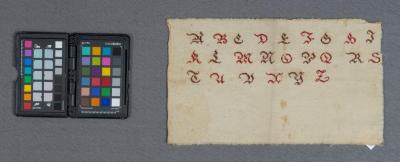 A B C D E F G H I
K L M N O P Q R S
T U V X Y Z